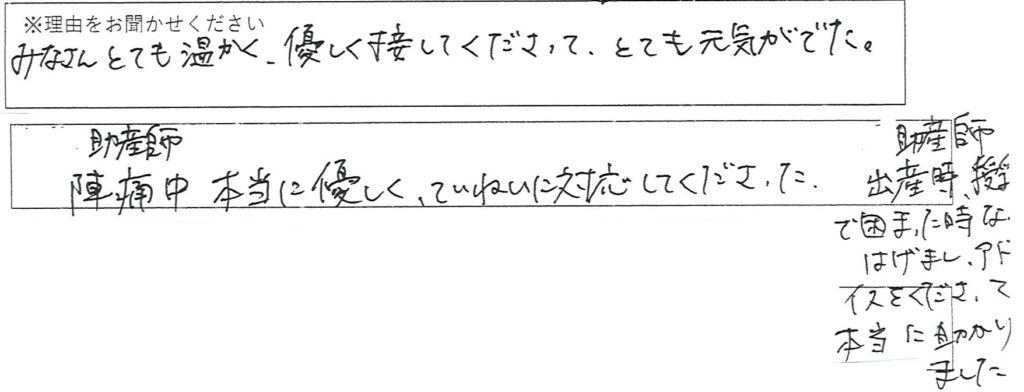 ※理由をお聞かせください
みなさんとても温かく、優しく接してくださって、とても元気がでた。
助産師
陣痛中 本当に優しく、ていねいに対応してくださった。
助産師
出産時、授
で困まった時な
はげまし、アド
イスをくださって
本当に助かり
ました